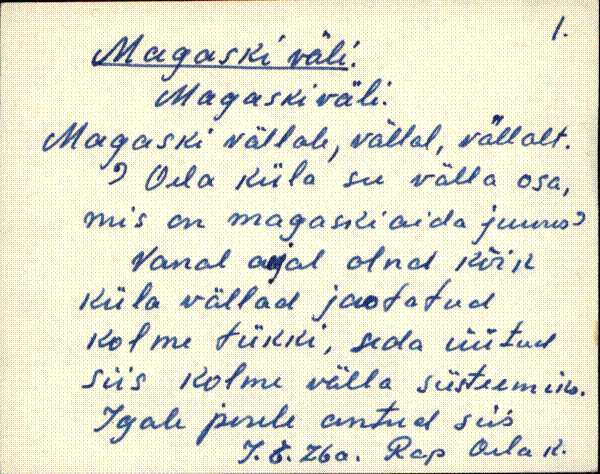 1.
Magaski väli.
Magaski väli.
Magaski vällale, vällal, vällalt.
? Oela küla su välla osa,
mis on magaskiaida juures?
Vanal aajal olnd kõik
küla vällad jaotatud
kolme tükki, seda üütud
siis kolme välla süsteemiks.
Igale perele antud siis
J.E. 26a. Rap Oela k.